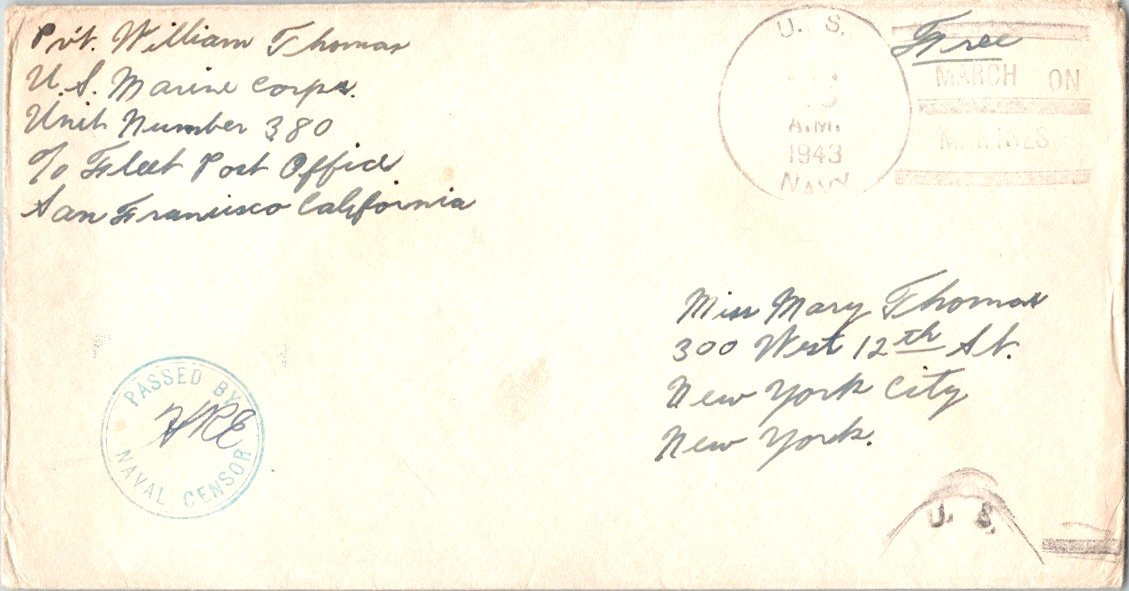 Pvt. William Thomas
U.S. Marine Corps.
Unit Number 380
c/o Fleet Post Office
San Francisco California
U. S.
A.M.
1943
NAVY
Free
MARCH ON
MARINES
Miss Mary Thomas
300 West 12th St.
New York City
New York.
PASSED BY
HRE
NAVAL CENSOR
U. S.